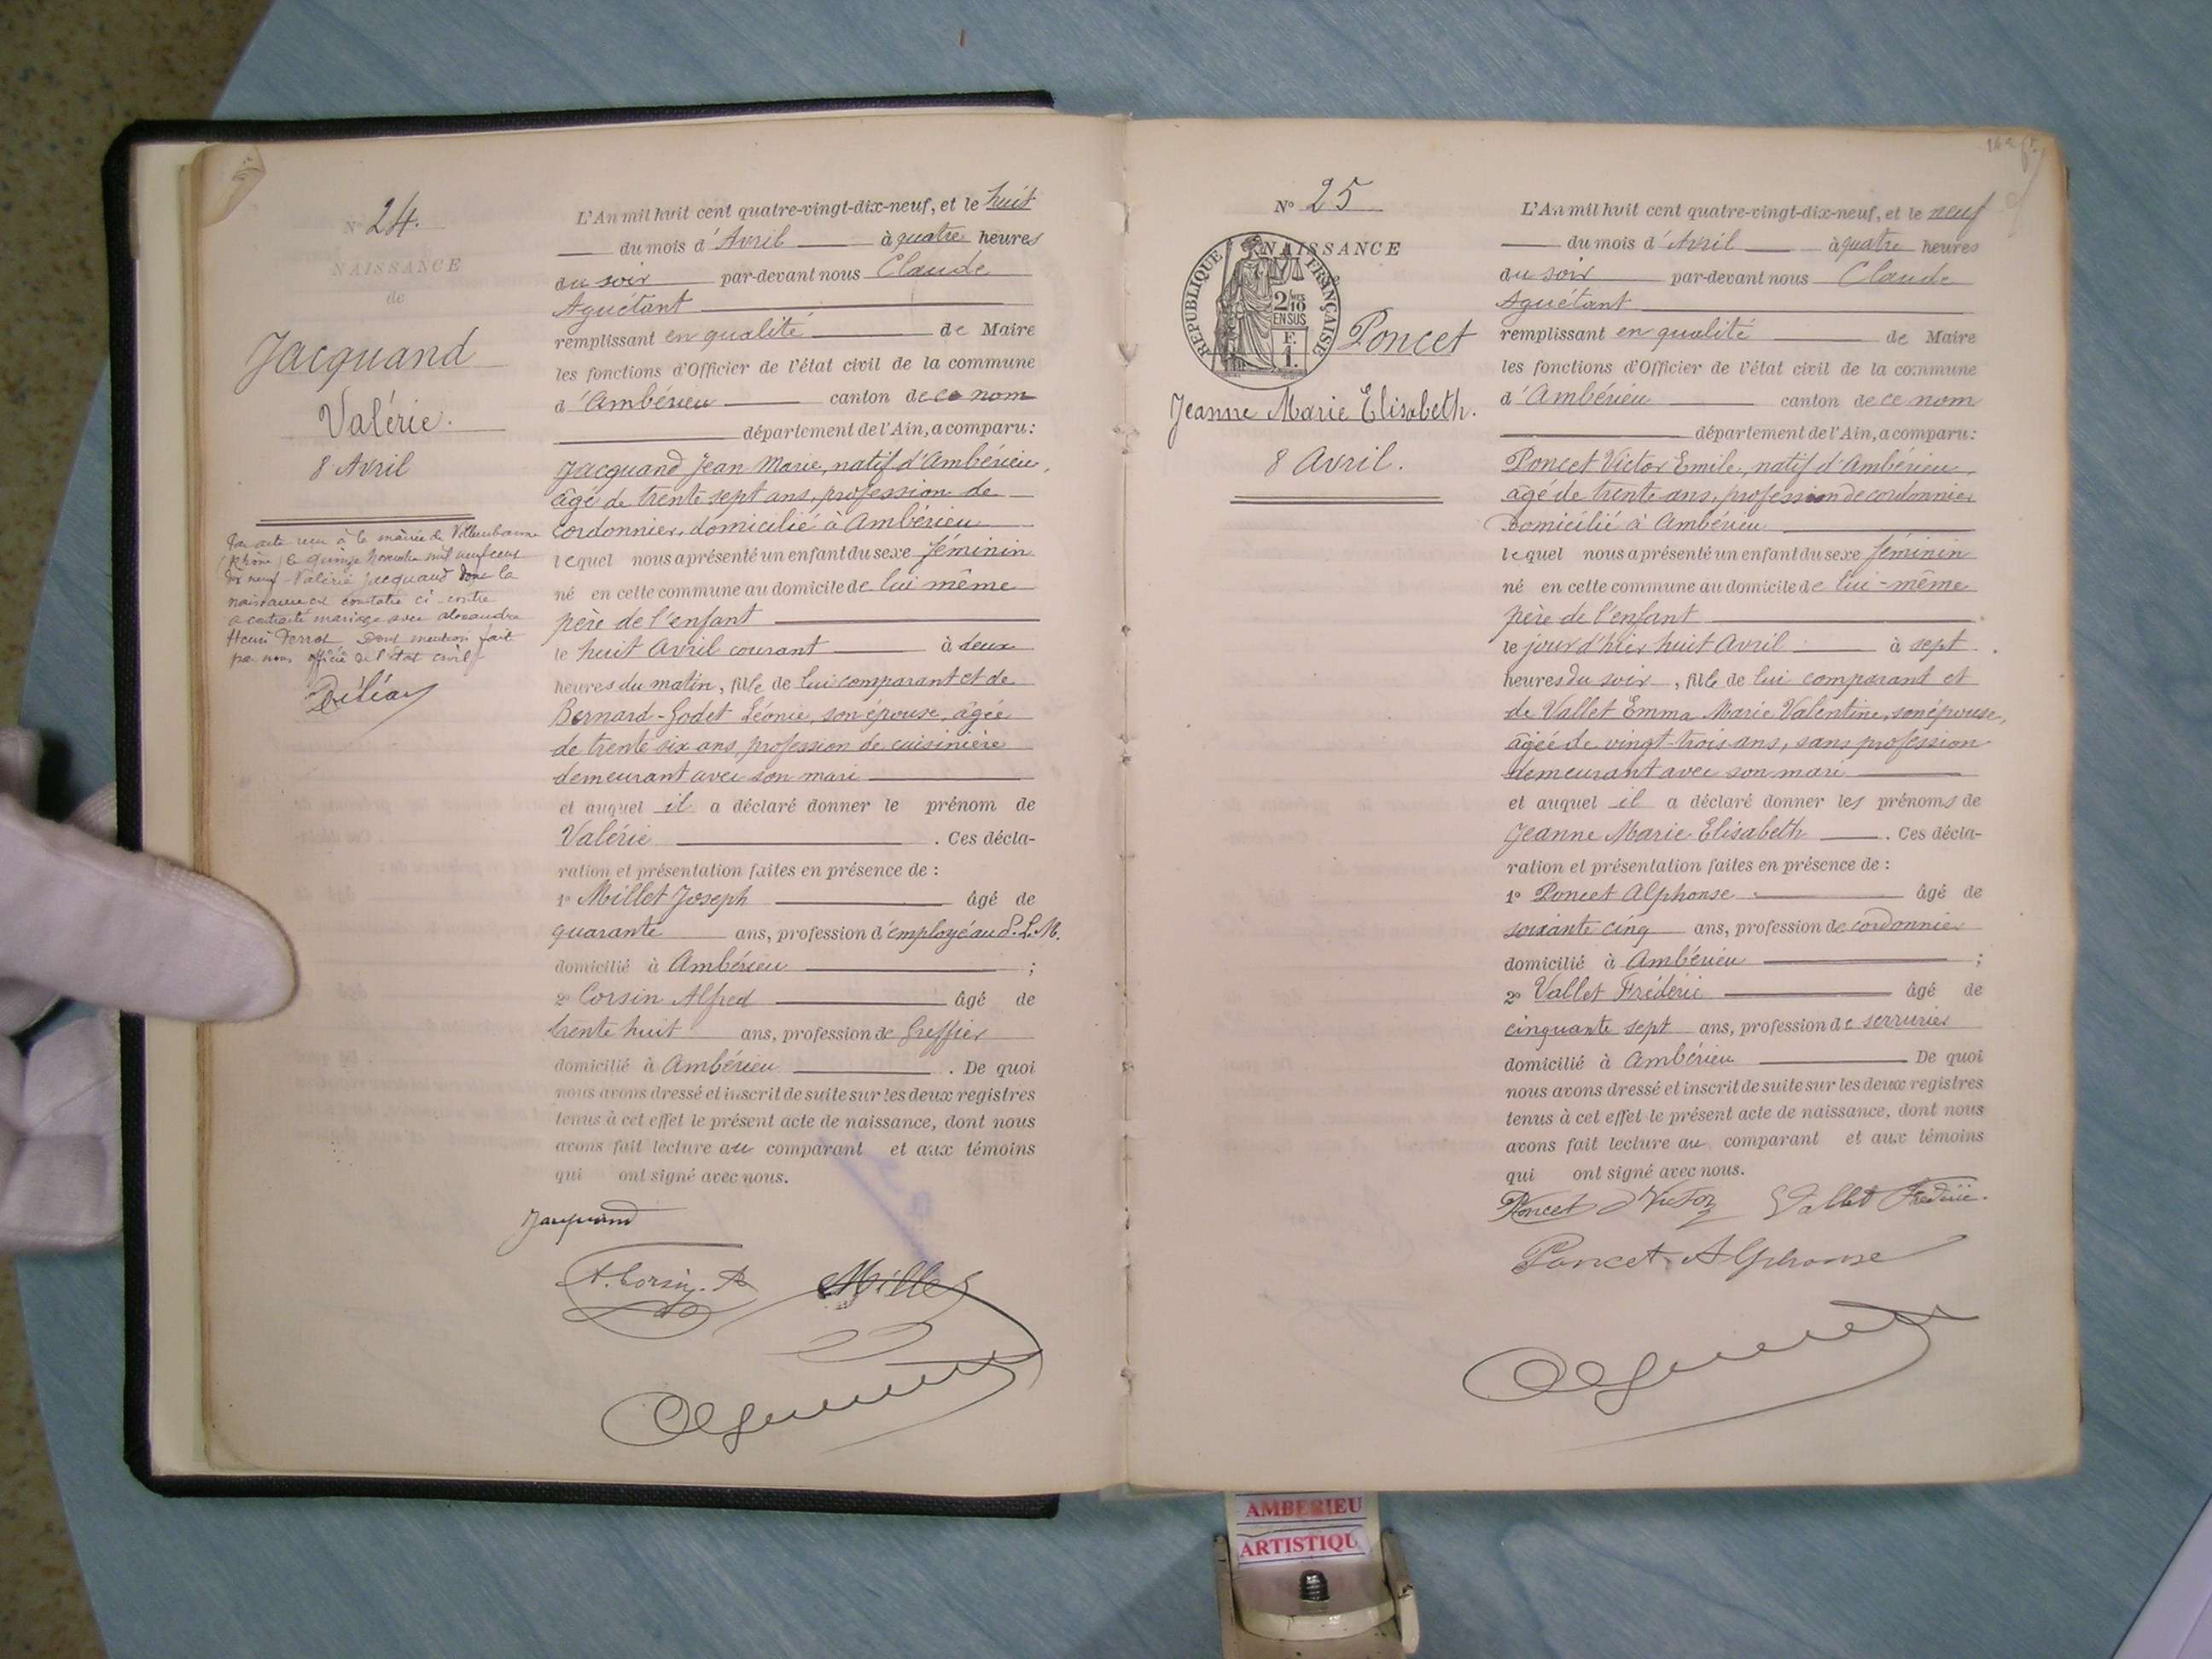 N° 24.
NAISSANCE
de
Jacquand
Valérie.
8 Avril
Par acte reçu à la mairie de Villeurbanne
(Rhône) le quinze novembre mil neuf cent
dix neuf - Valérie Jacquand dont la
naissance est constatée ci-contre
a contracté mariage avec Alexandre
Henri Dont mention fait
par nous officier de l'état civil
L'An mil huit cent quatre-vingt-dix-neuf, et le huit
du mois d'Avril à quatre heures
du soir par-devant nous Claude
Aguétant
remplissant en qualité de Maire
les fonctions d'Officier de l'état civil de la commune
d'Ambérieu canton de ce nom
département de l'Ain, a comparu:
Jacquand Jean Marie, natif d'Ambérieu,
âgé de trente sept ans, profession de
cordonnier, domicilié à Ambérieu
lequel nous a présenté un enfant du sexe féminin
né en cette commune au domicile de lui même
père de l'enfant
le huit Avril courant à deux
heures du matin, fille de lui comparant et de
Bernard-Godet Léonie, son épouse, âgée
de trente six ans, profession de cuisinière
demeurant avec son mari
et auquel il a déclaré donner le prénom de
Valérie . Ces décla-
ration et présentation faites en présence de :
1° Millet Joseph âgé de
quarante ans, profession d'employé au P.L.M.
domicilié à Ambérieu ;
2° Corsin Alfred âgé de
trente huit ans, profession de Greffier
domicilié à Ambérieu . De quoi
nous avons dressé et inscrit de suite sur les deux registres
tenus à cet effet le présent acte de naissance, dont nous
avons fait lecture au comparant et aux témoins
qui ont signé avec nous.
Jacquand
A. Corsin
Millet
N° 25
NAISSANCE
RÉPUBLIQUE FRANÇAISE
2/10
EN SUS
F.
1.
Poncet
Jeanne Marie Elisabeth.
8 Avril.
L'An mil huit cent quatre-vingt-dix-neuf, et le neuf
du mois d'Avril à quatre heures
du soir par-devant nous Claude
Aguétant
remplissant en qualité de Maire
les fonctions d'Officier de l'état civil de la commune
d'Ambérieu canton de ce nom
département de l'Ain, a comparu:
Poncet Victor Emile, natif d'Ambérieu,
âgé de trente ans, profession de cordonnier
domicilié à Ambérieu
lequel nous a présenté un enfant du sexe féminin
né en cette commune au domicile de lui-même
père de l'enfant
le jour d'hier huit Avril à sept
heures du soir, fille de lui comparant et
de Vallet Emma Marie Valentine, son épouse,
âgée de vingt-trois ans, sans profession
demeurant avec son mari
et auquel il a déclaré donner les prénoms de
Jeanne Marie Elisabeth . Ces décla-
ration et présentation faites en présence de :
1° Poncet Alphonse âgé de
soixante cinq ans, profession de cordonnier
domicilié à Ambérieu ;
2° Vallet Frédéric âgé de
cinquante sept ans, profession de serrurier
domicilié à Ambérieu De quoi
nous avons dressé et inscrit de suite sur les deux registres
tenus à cet effet le présent acte de naissance, dont nous
avons fait lecture au comparant et aux témoins
qui ont signé avec nous.
Poncet Victor Vallet Frédéric.
Poncet Alphonse
AMBERIEU
ARTISTIQU